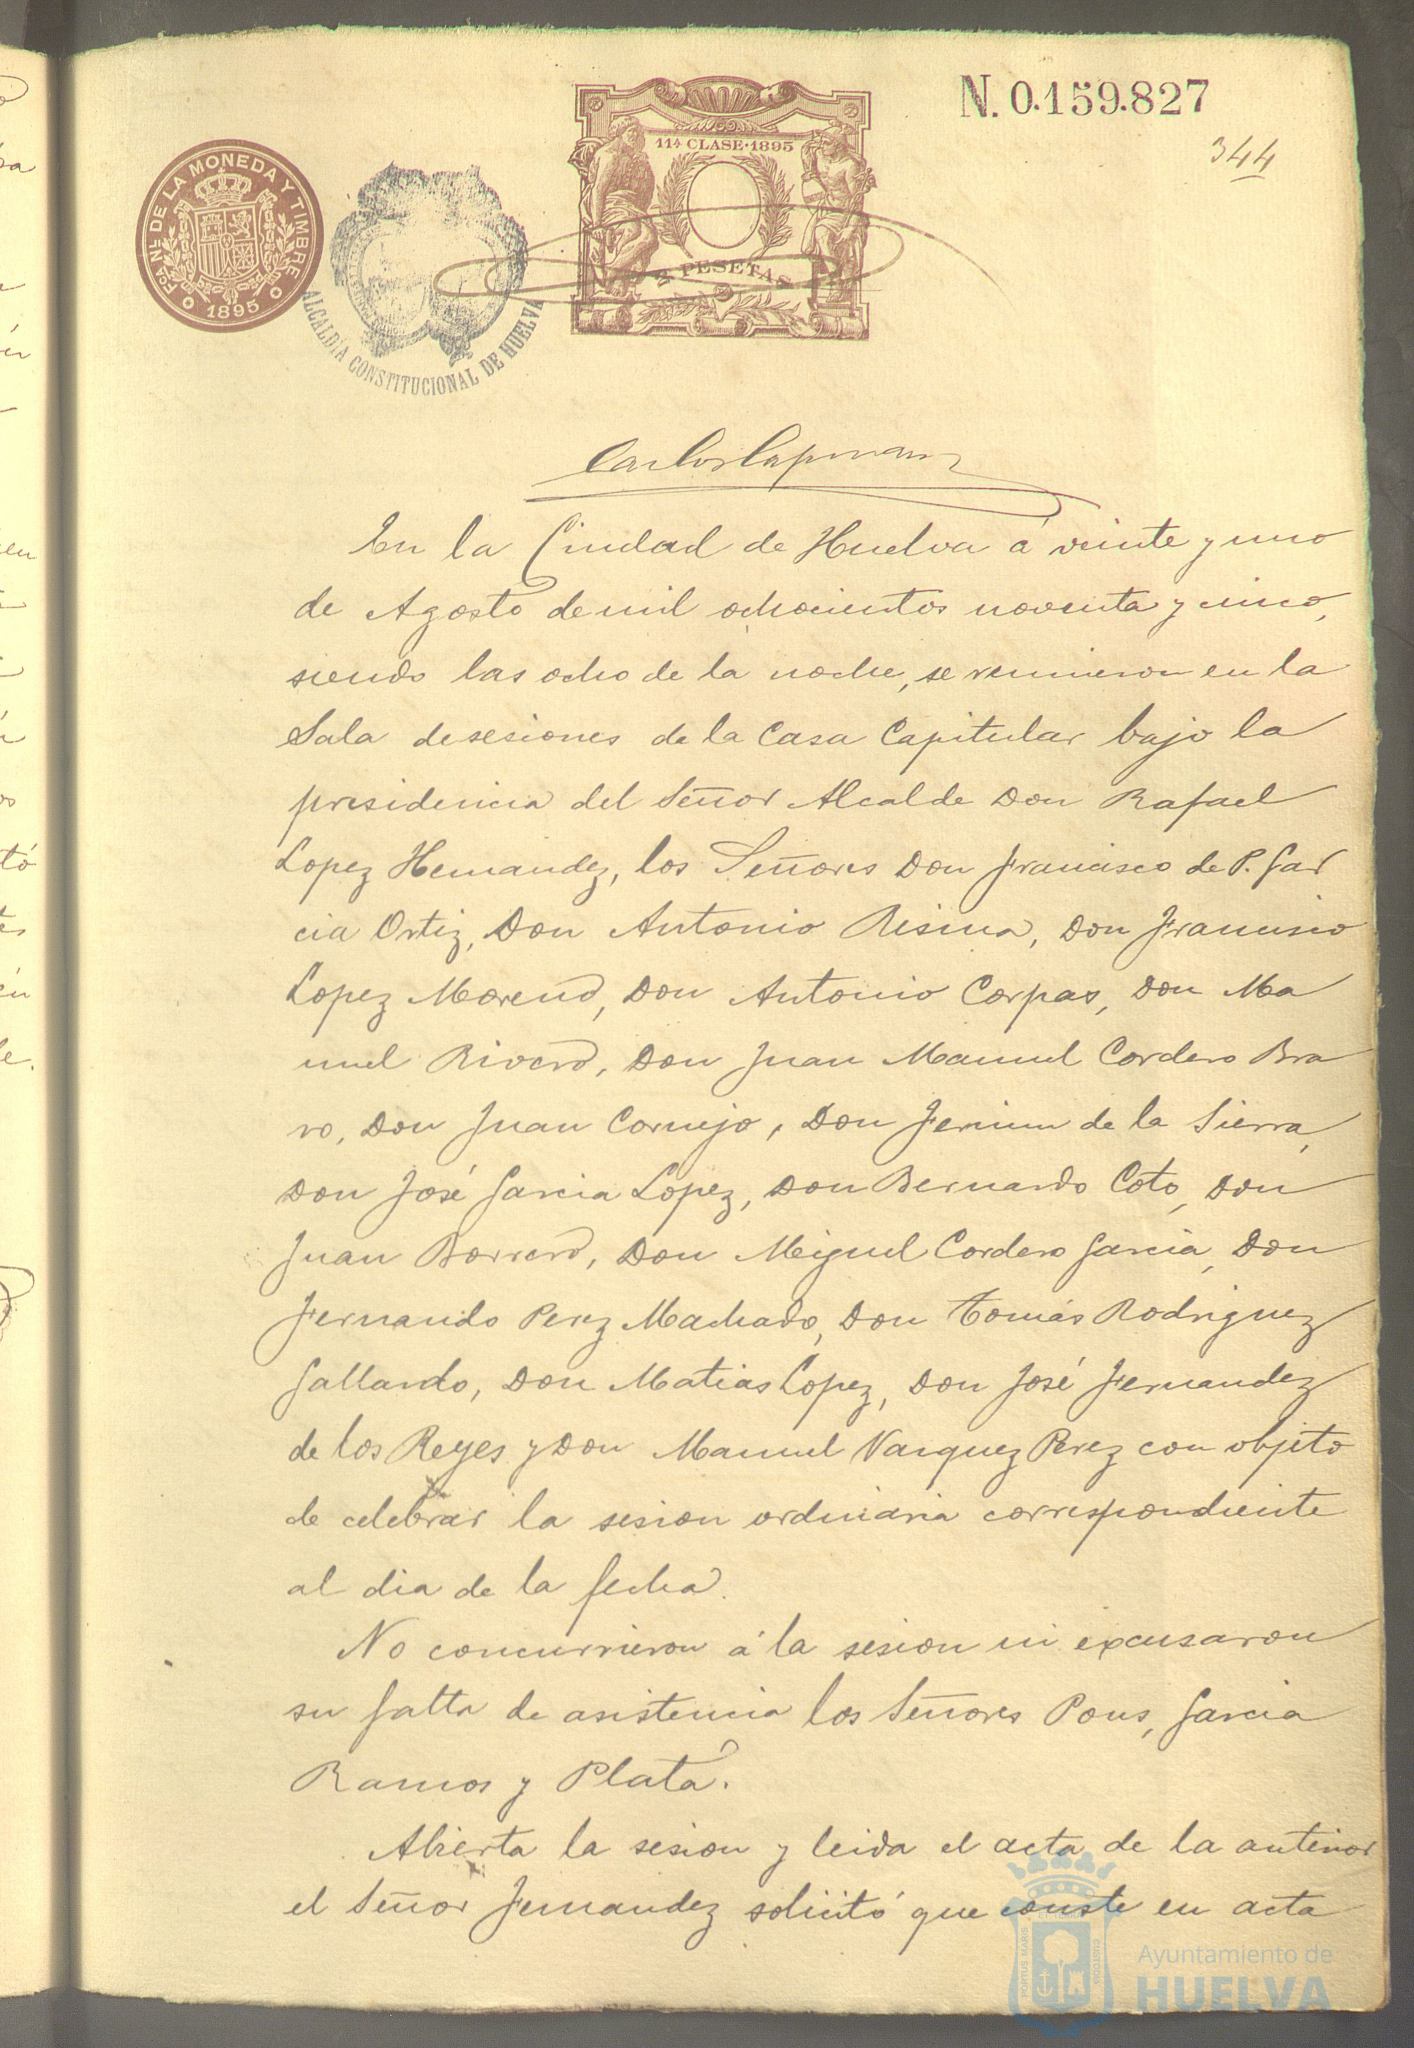 N. 0.159.827
344
11ª CLASE·1895
2 PESETAS
FCA. NL. DE LA MONEDA Y TIMBRE
1895
ALCALDÍA CONSTITUCIONAL DE HUELVA
En la Ciudad de Huelva á veinte y uno
de Agosto de mil ochocientos noventa y cinco,
siendo las ocho de la noche, se reunieron en la
Sala de sesiones de la Casa Capitular bajo la
presidencia del Señor Alcalde Don Rafael
Lopez Hernandez, los Señores Don Francisco de P. Gar
cia Ortiz, Don Antonio Risina, Don Francisco
Lopez Moreno, Don Antonio Corpas, Don Ma
nuel Rivero, Don Juan Manuel Cordero Bra
vo, Don Juan Cornejo, Don Fermin de la Sierra,
Don José Garcia Lopez, Don Bernardo Coto, Don
Juan Borrero, Don Miguel Cordero Garcia, Don
Fernando Perez Machado, Don Tomás Rodriguez
Gallardo, Don Matias Lopez, Don José Fernandez
de los Reyes y Don Manuel Vazquez Perez con objeto
de celebrar la sesion ordinaria correspondiente
al dia de la fecha.
No concurrieron á la sesion ni excusaron
su falta de asistencia los Señores Pons, Garcia
Ramos y Plata.
Abierta la sesion y leida el acta de la anterior
el Señor Fernandez solicitó que conste en acta
Ayuntamiento de
HUELVA